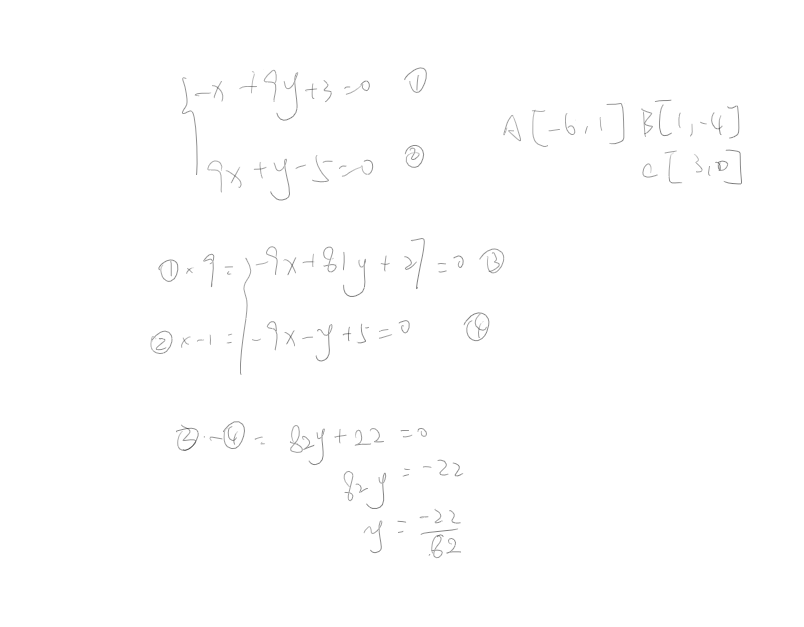 {-x+9y+3=0 ①
9x+y-5=0 ②
A[-6,1] B[1,-4]
C[3,0]
①×9= {-9x+81y+27=0 ③
②×-1= -9x-y+5=0 ④
③-④= 82y+22=0
82y=-22
y=-22/82